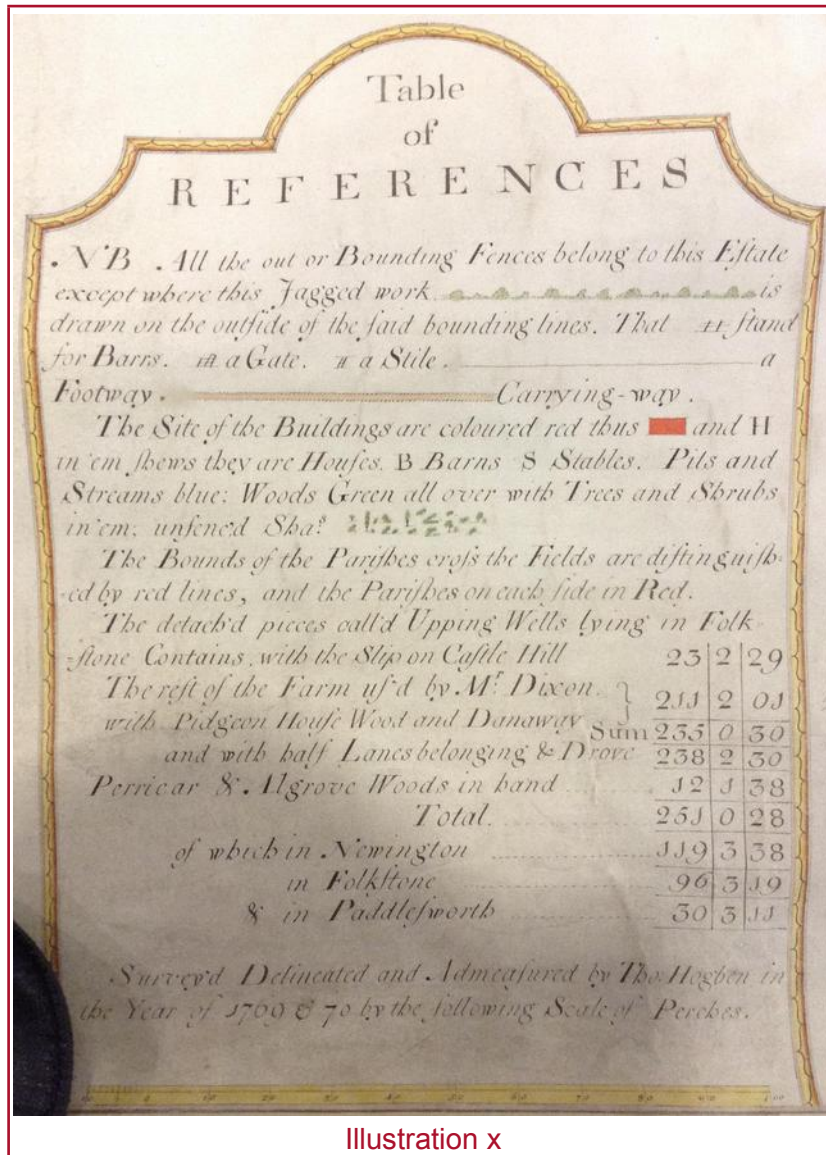 Table
of
REFERENCES
NB . All the out or Bounding Fences belong to this Eſtate
except where this Jagged work is
drawn on the outſide of the ſaid bounding lines. That ſtand
for Barrs. a Gate. a Stile. a
Footway. Carrying-way.
The Site of the Buildings are coloured red thus and H
in'em ſhews they are Houſes. B Barns S Stables. Pits and
Streams blue: Woods Green all over with Trees and Shrubs
in'em; unfenc'd Sha.s
The Bounds of the Pariſhes croſs the Fields are diſtinguiſh-
-ed by red lines, and the Pariſhes on each ſide in Red.
The detach'd pieces call'd Upping Wells lying in Folk-
-ſtone Contains, with the Slip on Caſtle Hill 23 2 29
The reſt of the Farm uſ'd by Mr. Dixon. } 211 2 01
with Pidgeon Houſe Wood and Danaway
Sum 235 0 30
and with half Lanes belonging & Drove 238 2 30
Perricar & Algrove Woods in hand 12 1 38
Total. 251 0 28
of which in Newington 119 3 38
in Folkſtone 96 3 19
& in Paddleſworth 30 3 11
Survey'd Delineated and Admeaſured by Tho: Hogben in
the Year of 1769 & 70 by the following Scale of Perches.
10 5 10 20 30 40 50 60 70 80 90 100
Illustration x